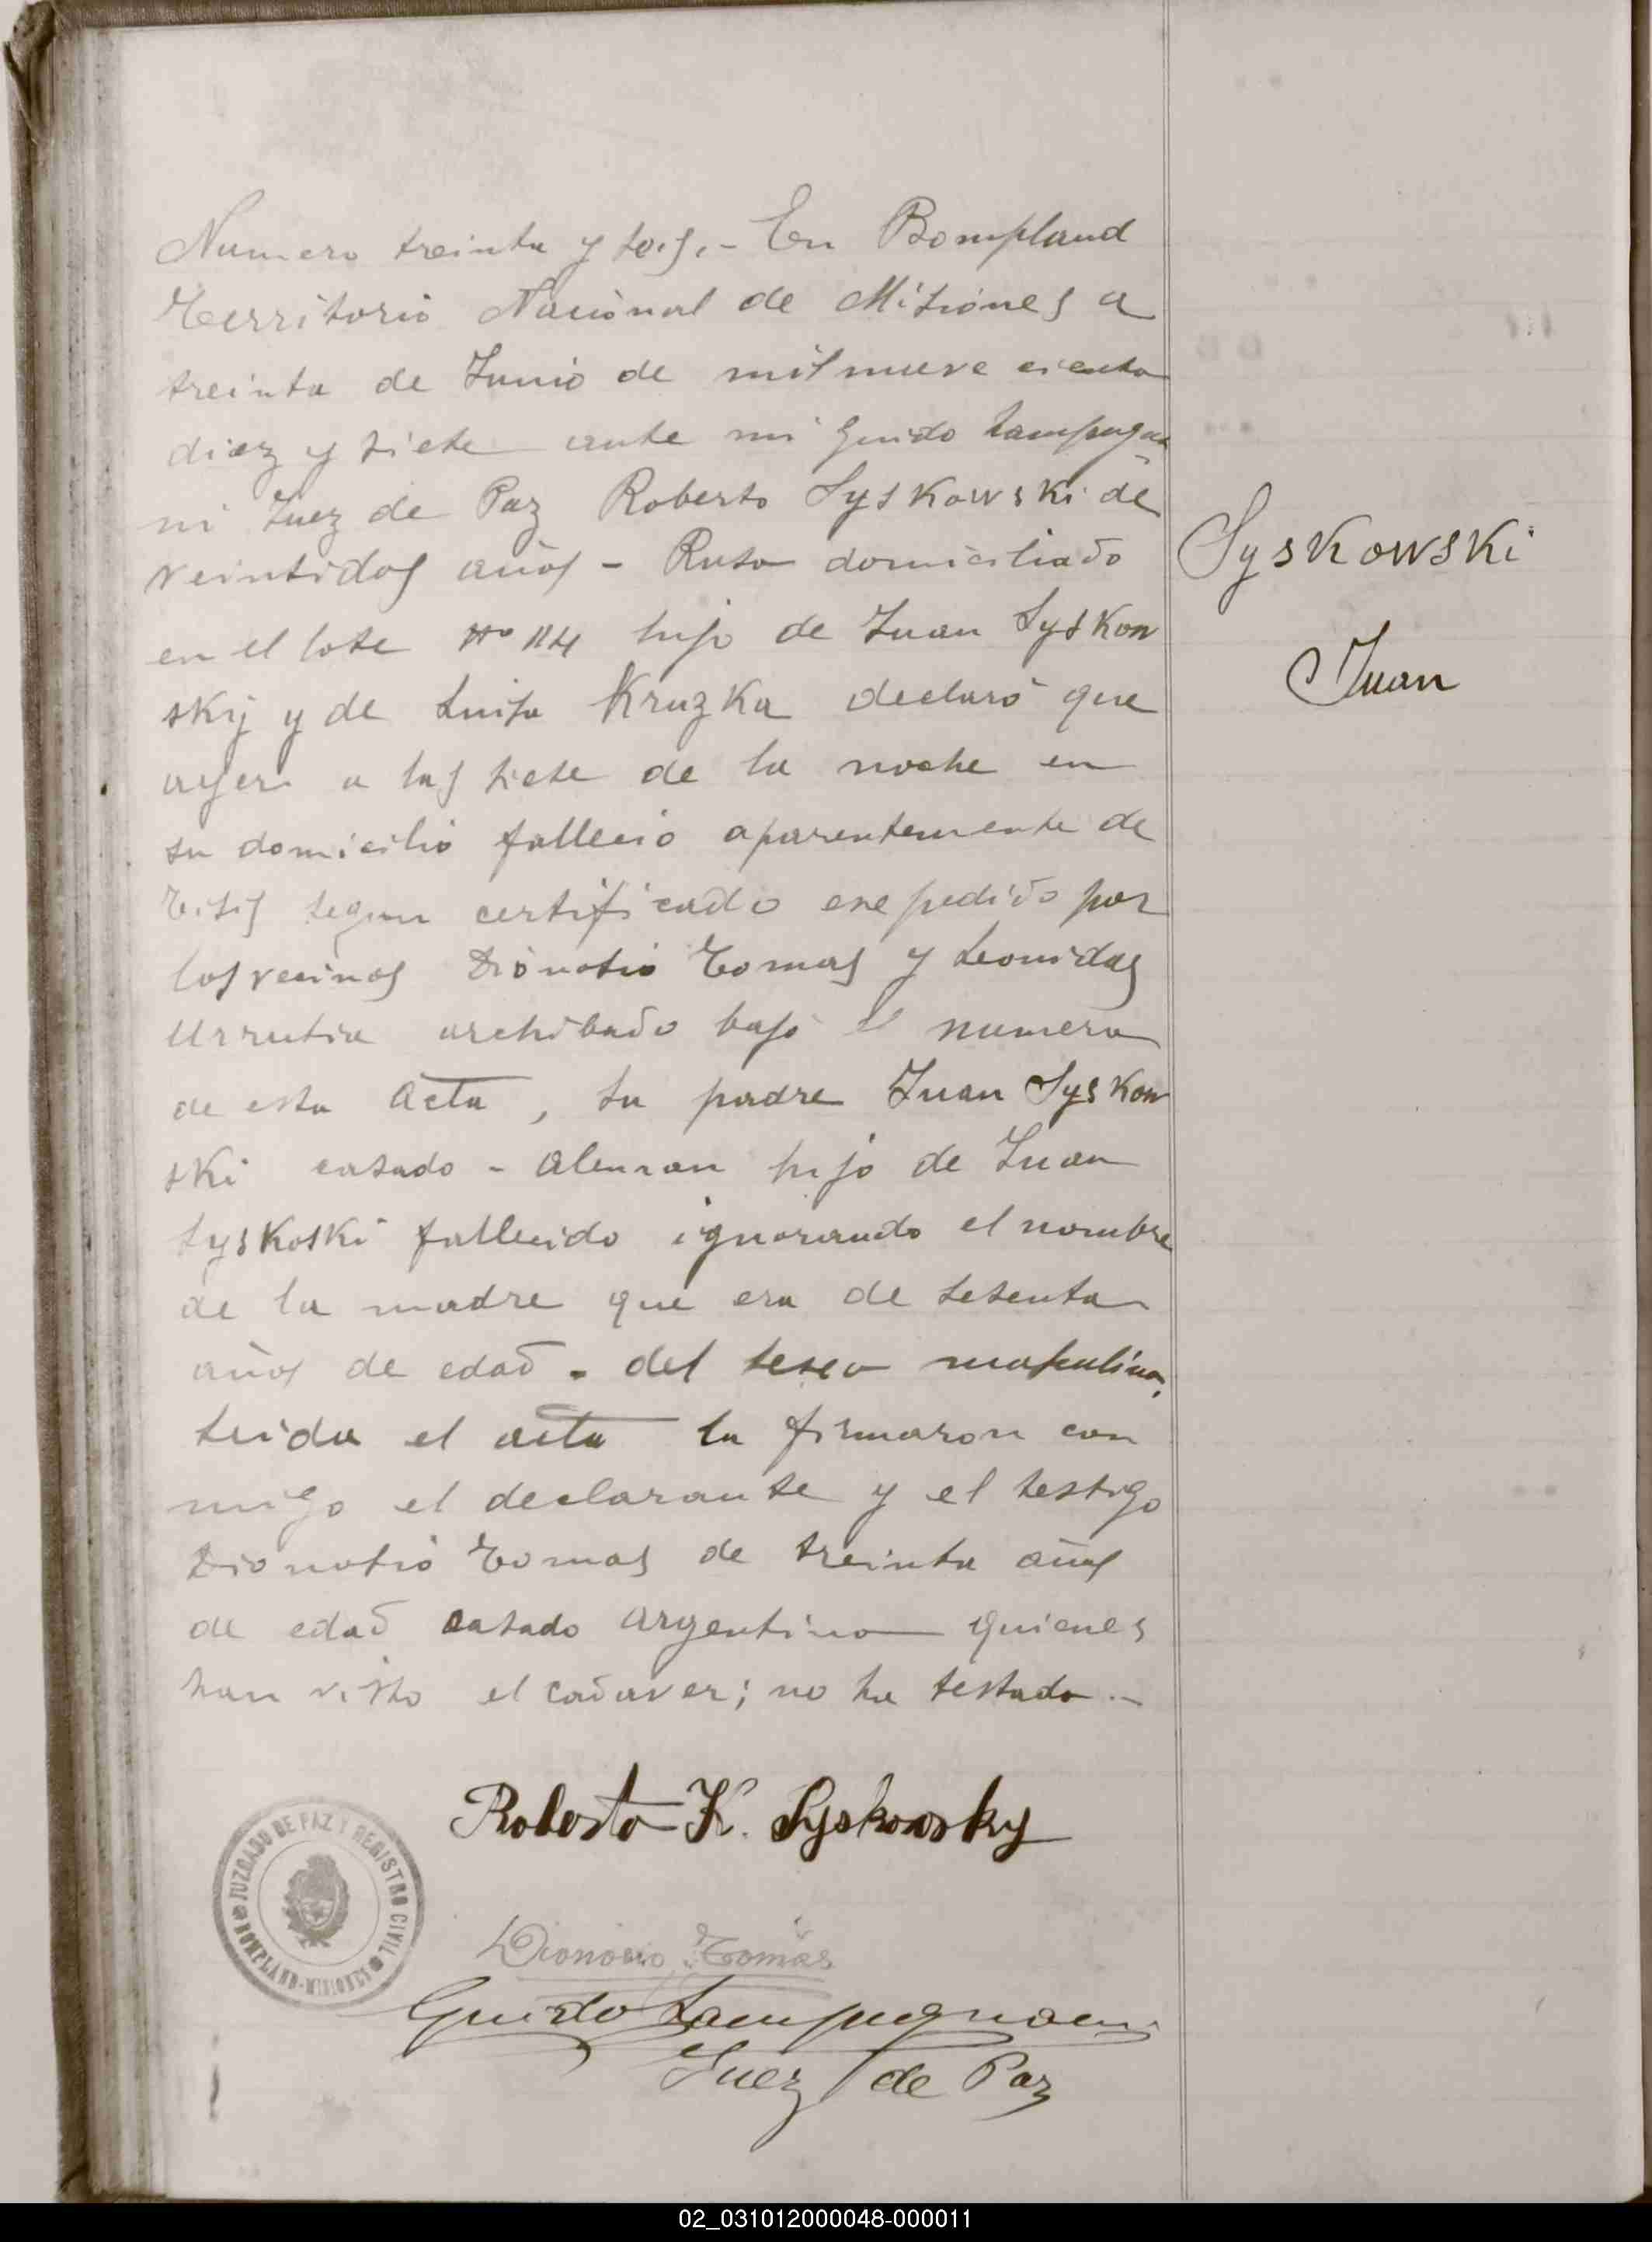 Numero treinta y seis.- En Bompland
Territorio Nacional de Misiones a
treinta de Junio de mil nueve ciento
diez y siete ante mi Guido Lampugna
ni Juez de Paz Roberto Syskowski de
veintidos años - Ruso domiciliado
en el lote No 114 hijo de Juan Syskow
skij y de Luisa Kruzka declaró que
ayer a las siete de la noche en
su domicilio fallecio aparentemente de
Tisis segun certificado expedido por
los vecinos Dionosio Tomas y Leonidas
Urrutia archibado bajo el numero
de esta acta, su padre Juan Syskow
ski casado - aleman hijo de Juan
Syskoski fallecido ignorando el nombre
de la madre que era de sesenta
años de edad - del sexo masculino,
Leida el acta la firmaron con
migo el declarante y el testigo
Dionosio Tomas de treinta años
de edad casado argentino quienes
han visto el cadaver; no ha testado.-
Syskowski
Juan
Roberto K. Syskowsky
Dionosio Tomás
Guido Lampugnani
Juez de Paz
JUZGADO DE PAZ Y REGISTRO CIVIL
BOMPLAND-MISIONES
02_031012000048-000011